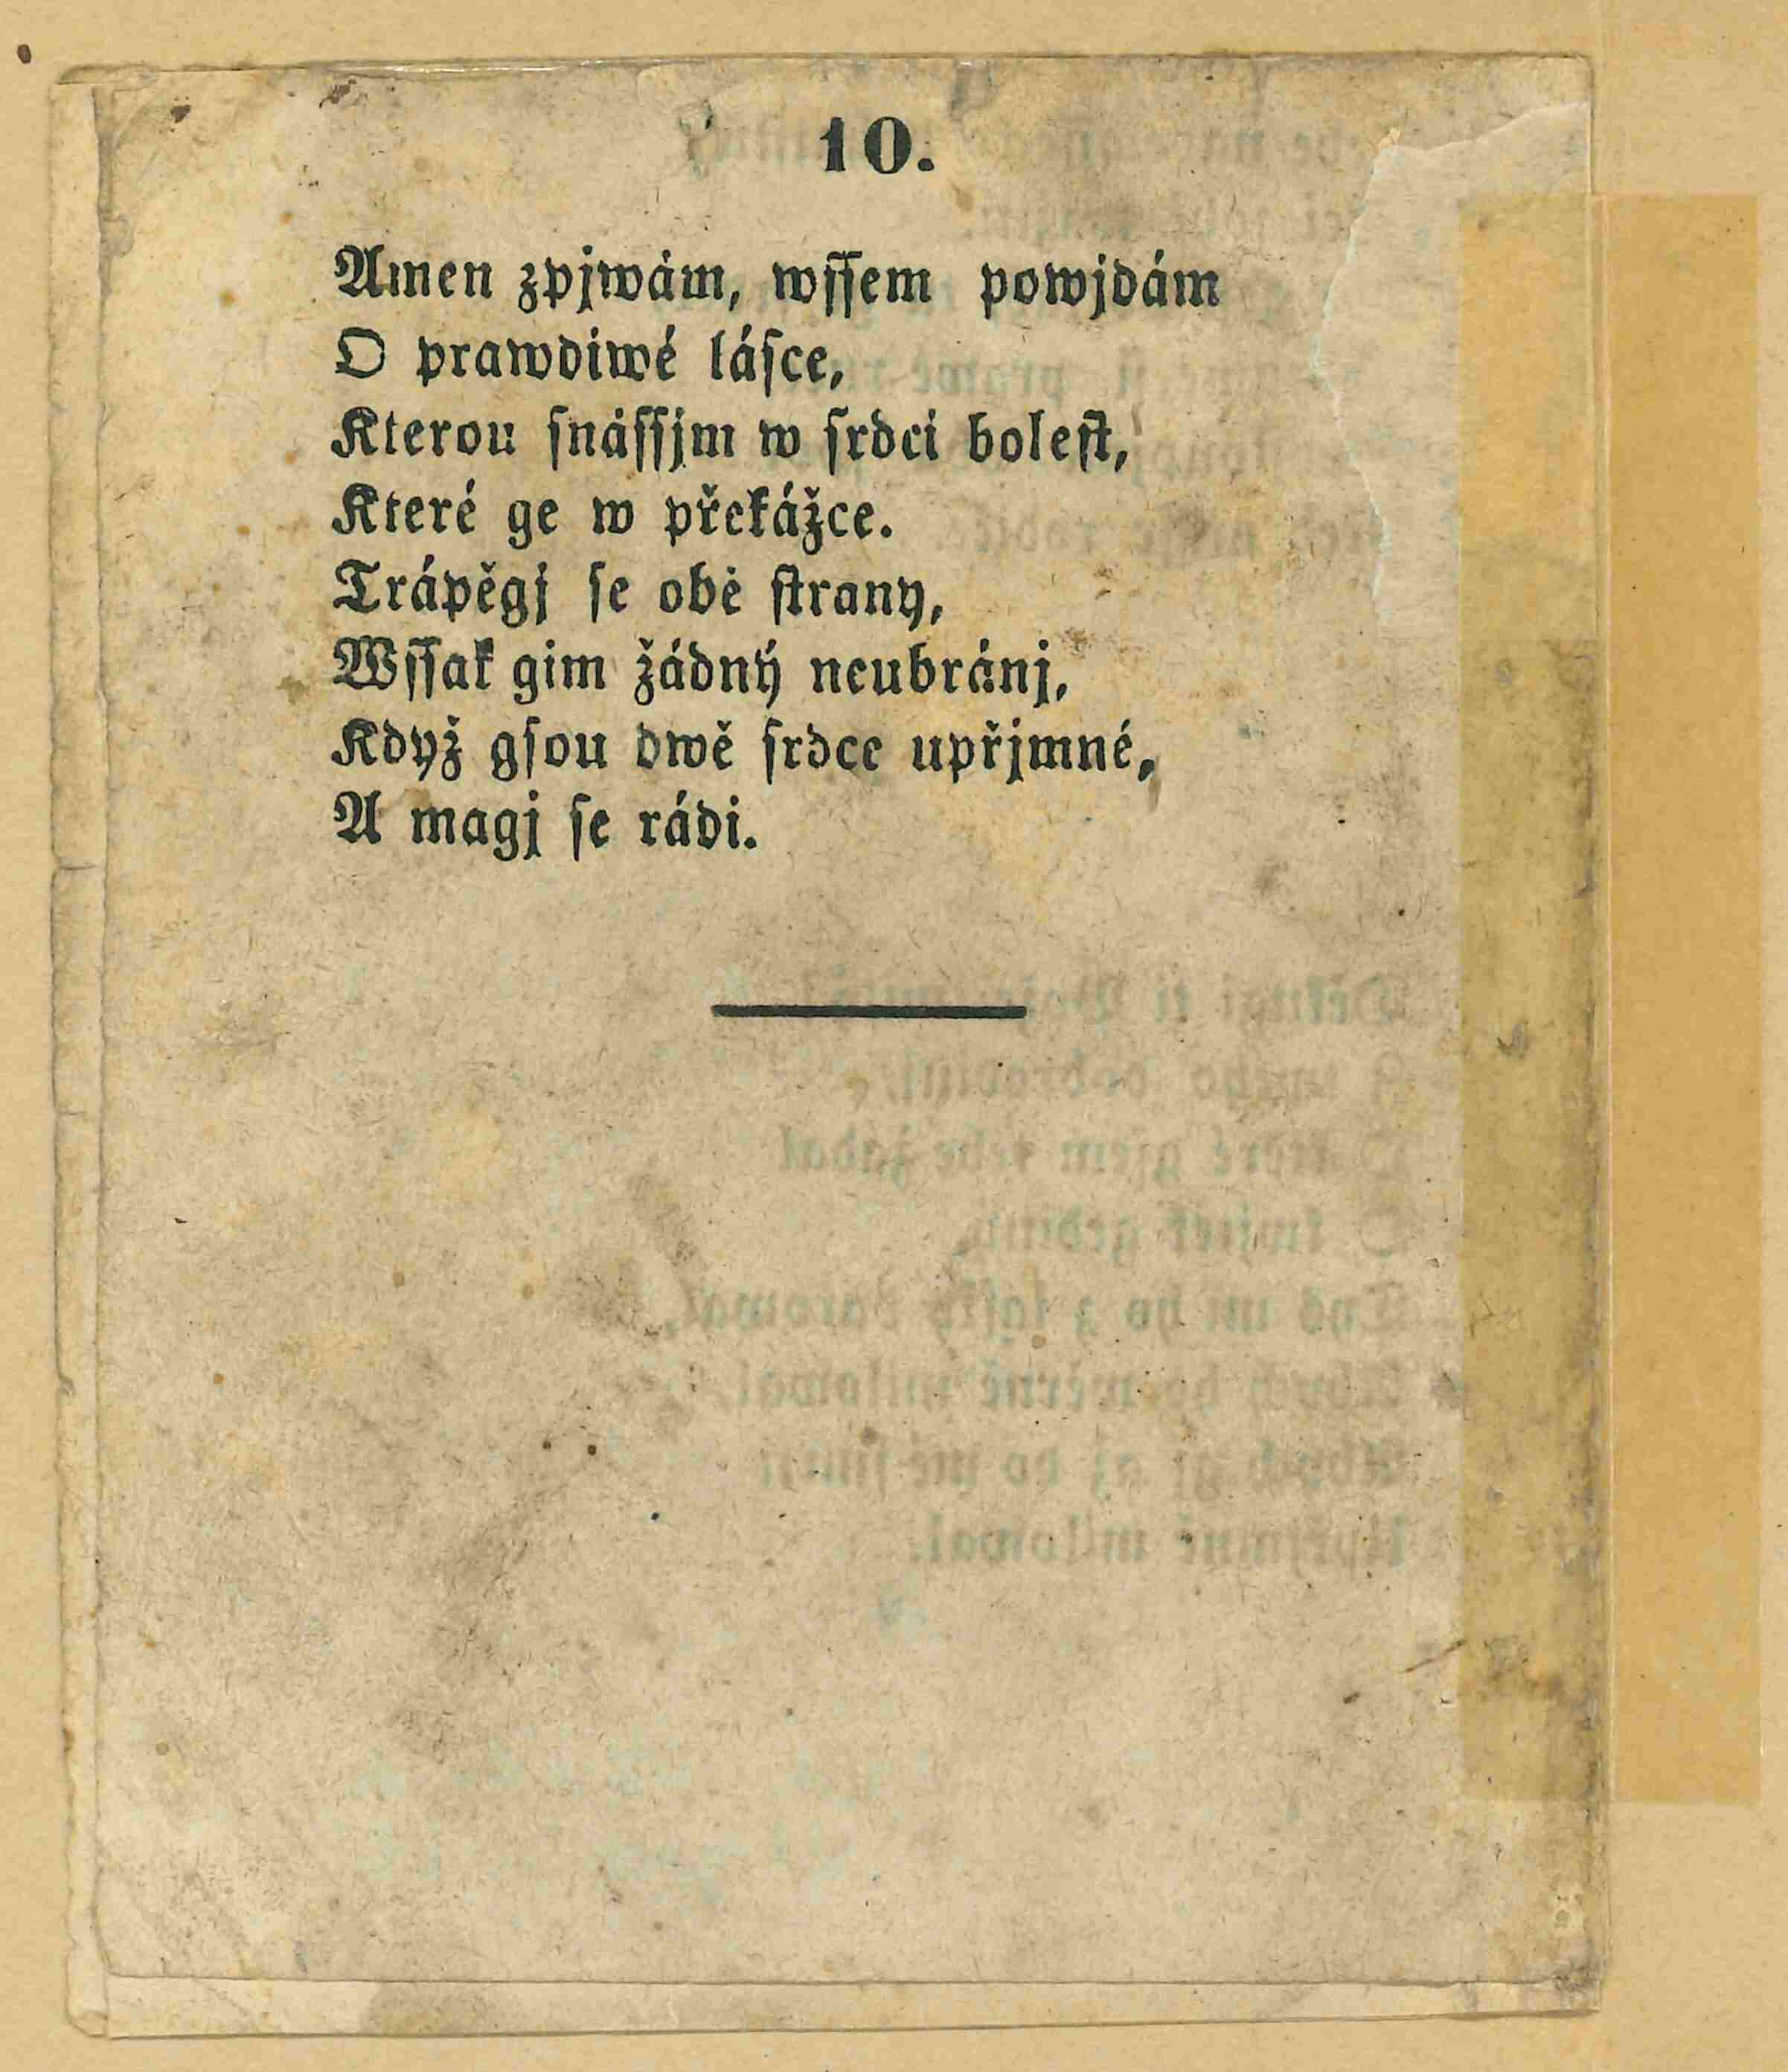 10.
Amen zpjwám, wſſem powjdám
O prawdiwé láſce,
Kterou ſnáſſjm w ſrdci boleſt,
Které ge w překážce.
Trápěgj ſe obě ſtrany,
Wſſak gim žádný neubránj,
Když gſou dwě ſrdce upřjmné,
A magj ſe rádi.